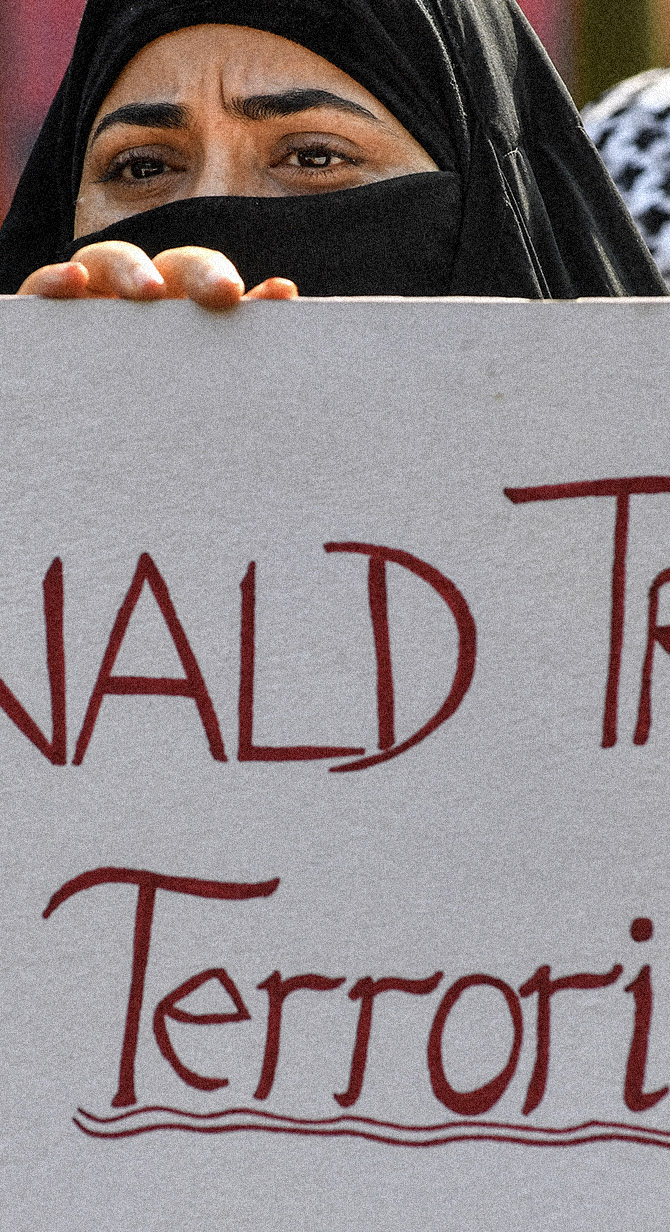 NALD TR
Terrori